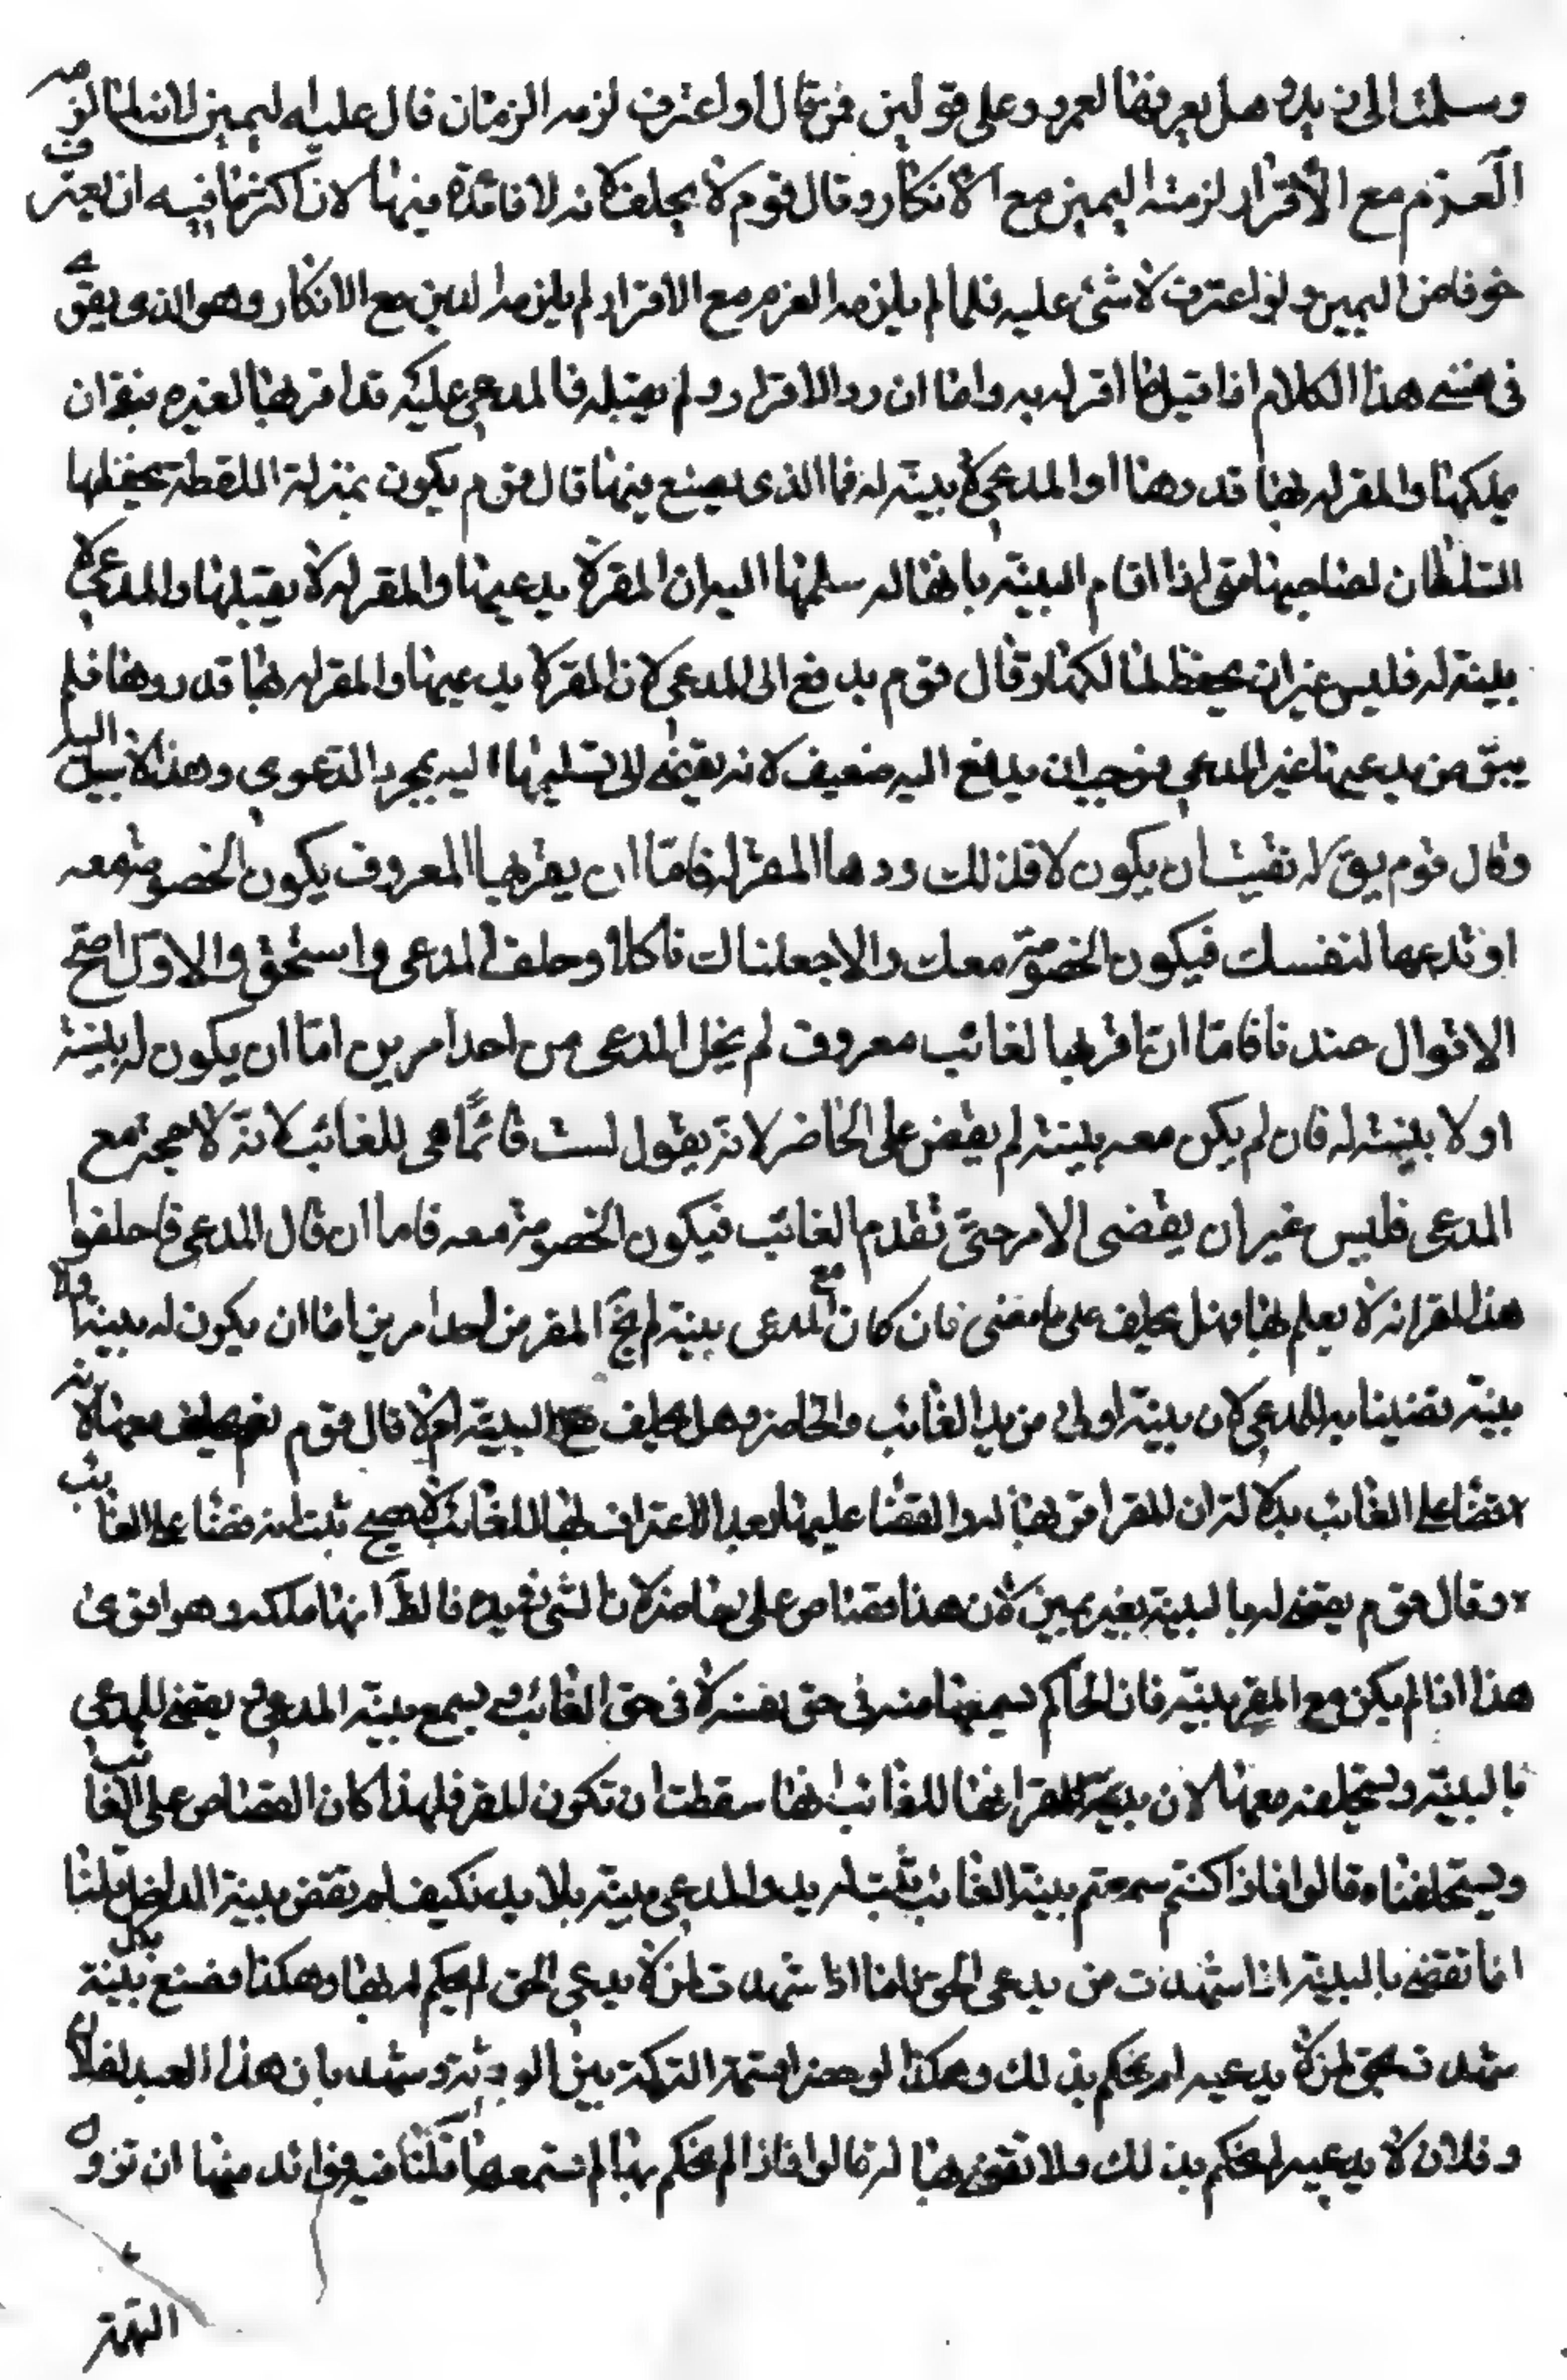 وسلمت الى زيد وهل يعرفها لعمرو على قولين فمن قال لو اعترف لزمه الزمتان قال عليه اليمين لانه لما لزمه
الغرم مع الاقرار لزمته اليمين مع الانكار وقال قوم لا يحلف لانه لا فائدة فيها لان اكثر ما فيه ان يعترف
خوفا من اليمين ولو اعترف لا شئ عليه فلما لم يلزمه الغرم مع الاقرار لم يلزمه اليمين مع الانكار وهو الذى يقوى
فى نفسى هذا الكلام اذا قبل ما اقر له به واما ان رد الاقرار ولم يقبله فالمدعى عليه قد اقر بها لغيره بنفوان
يملكها والمقر له بها قد ردها او المدعى لا بينة له فما الذى يصنع فيها قال قوم يكون بمنزلة اللقطة يحفظها
السلطان لصاحبها متى اذا اقام البينة بانها له سلمها اليه لان المقر لا يدعيها والمقر له لا يقبلها والمدعى لا
بينة له فليس غير ان يحفظ لمالكها وقال قوم يدفع الى المدعى لان المقر لا يدعيها والمقر له بها قد ردها فلم
يبق من يدعيها غير المدعى فوجب ان يدفع اليه ضعيف لانه يقضى الى تسليمها اليه بمجرد الدعوى وهذا لا سبيل اليه
وقال قوم يق له نفيت ان يكون لك فلذلك ردها المقر له فاما ان يقر بها المعروف يكون الخصومة معه
او تدعها لنفسك فيكون الخصومة معك والا جعلناك ناكلا وحلف المدعى واستحق والاول اصح
الاقوال عندنا فاما ان اقر بها لغائب معروف لم يخل المدعى من احد امرين اما ان يكون له بينة
او لا بينة له فان لم يكن معه بينة لم يقض على الحاضر لانه يقول لست قائما هى للغائب لانه لا حجة مع
المدعى فليس غير ان يقضى الامر حتى تقدم الغائب فيكون الخصومة معه فاما ان قال المدعى فاحلفوا
هذا المقر انه لا يعلم بها فهل يحلف على ما مضى فان كان مع المدعى بينة لم يخ المقر من احد امرين اما ان يكون له بينة اولا
بينة قضينا به للمدعى لان بينة اولى من يد الغائب والحاضر وهل يحلف مع البينة ام لا قال قوم نعم يحلف معها لانه
قضا على الغائب بدلالة ان المقر اقر بها له والقضا عليها بعد الاعتراف بها للغائب لا يصح ثبت انه قضا على الغائب
وقال قوم يقضى له بالبينة بغير يمين لان هذا قضاء على حاضر لان الشئ فى يده فالظ انها ملكه وهو اقوى
هذا اذا لم يكن مع المقر بينة فان الحاكم يسمعها منه فى حق نفسه لا فى حق الغائب ويسمع بينة المدعى ويقضى للمدعى
بالبينة ويستحلفه معها لان بينة المقر انها للغائب انها سقطت ان تكون للمقر فلهذا كان القضاء على الغائب
ويستحلفناه قالوا فاذا كنتم سمعتم بينة الغائب ثبت له يد والمدعى بينة بلا يد فكيف لم تقض ببينة الداخل قلنا
انما تقضى بالبينة اذا شهدت من يدعى الحق فاما اذا شهدت لمن لا يدعى الحق لم يحكم له بها وهكذا فصنع بينة بدل
شهدت بحق لمن لا يدعيه لم يحكم بذلك وهكذا لو حضر قسمة التركة بين الورثة وشهد بان هذا العبد لفلان
وفلان لا يدعيه لم يحكم بذلك ولا تقضى بها له قالوا فاذا لم يحكم بها لم تسمعها قلنا فيه فوائد منها ان تزول
التهمة